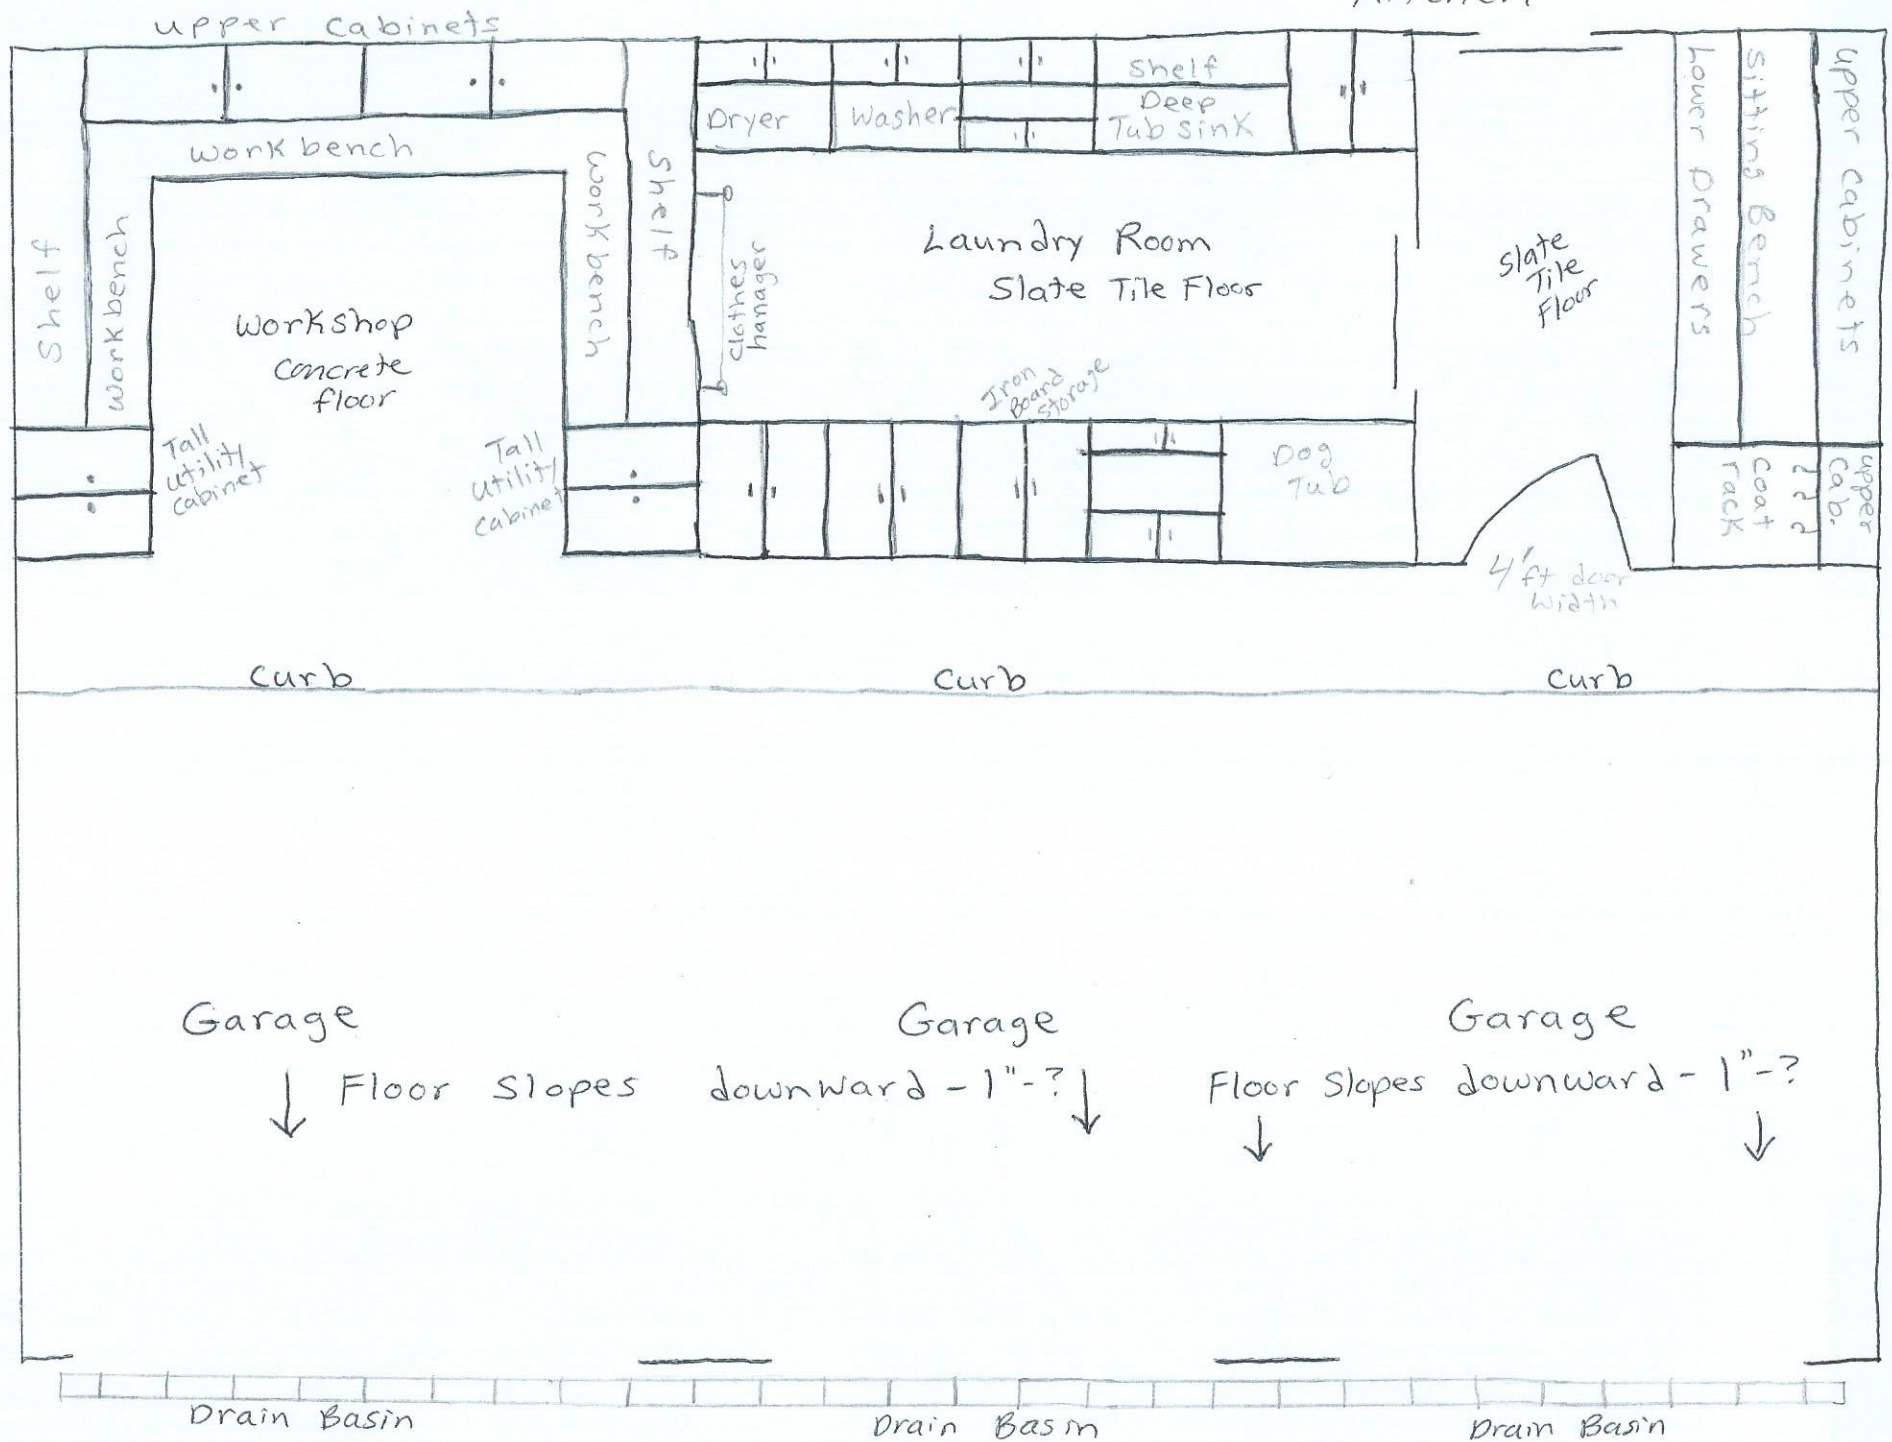 Kitchen
upper cabinets
Shelf
Workbench
Workbench
Workbench
Shelf
Workshop
Concrete
floor
Tall
utility
cabinet
Tall
utility
cabinet
Dryer
Washer
Shelf
Deep
Tub Sink
Clothes
hanager
Laundry Room
Slate Tile Floor
Iron
Board
Storage
Dog
Tub
Slate
Tile
Floor
Lower Drawers
Sitting Bench
Upper Cabinets
Coat
rack
upper
Cab.
4' ft door
width
Curb
Curb
Curb
Garage
Garage
Garage
Floor Slopes downward - 1"-?
Floor Slopes downward - 1"-?
Drain Basin
Drain Basin
Drain Basin